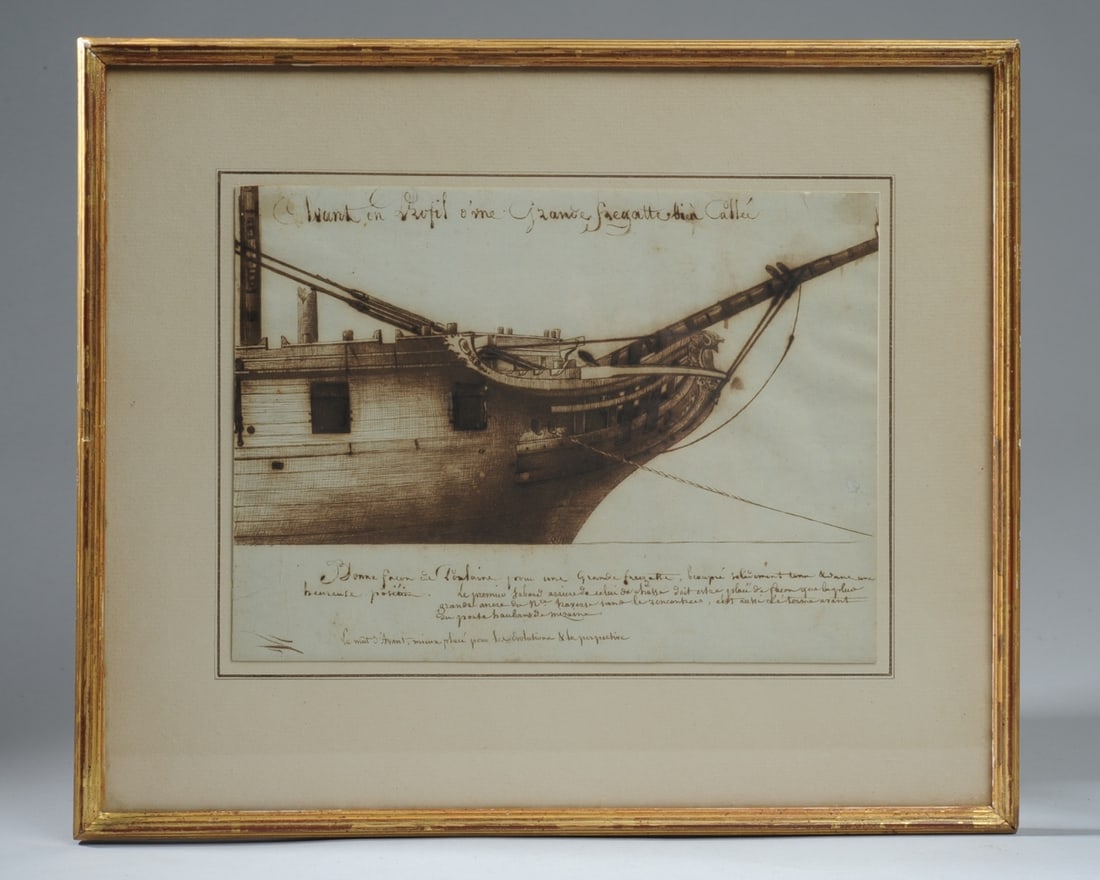 Avant en Profil d'une Grande fregatte bien Calleé
Bonne façon de Poulaine pour une Grande fregatte, beaupré solidement tenu & dans une
heureuse position. Le premier Sabord arriere de celui de chasse doit estre placé de façon que la plus
grande ancre du Nre traverse sans le rencontrer, c'est aussi le terme avant
du porte haubans de mizaine
Le mât d'Avant, mieux placé pour les Evolutions & la perspective